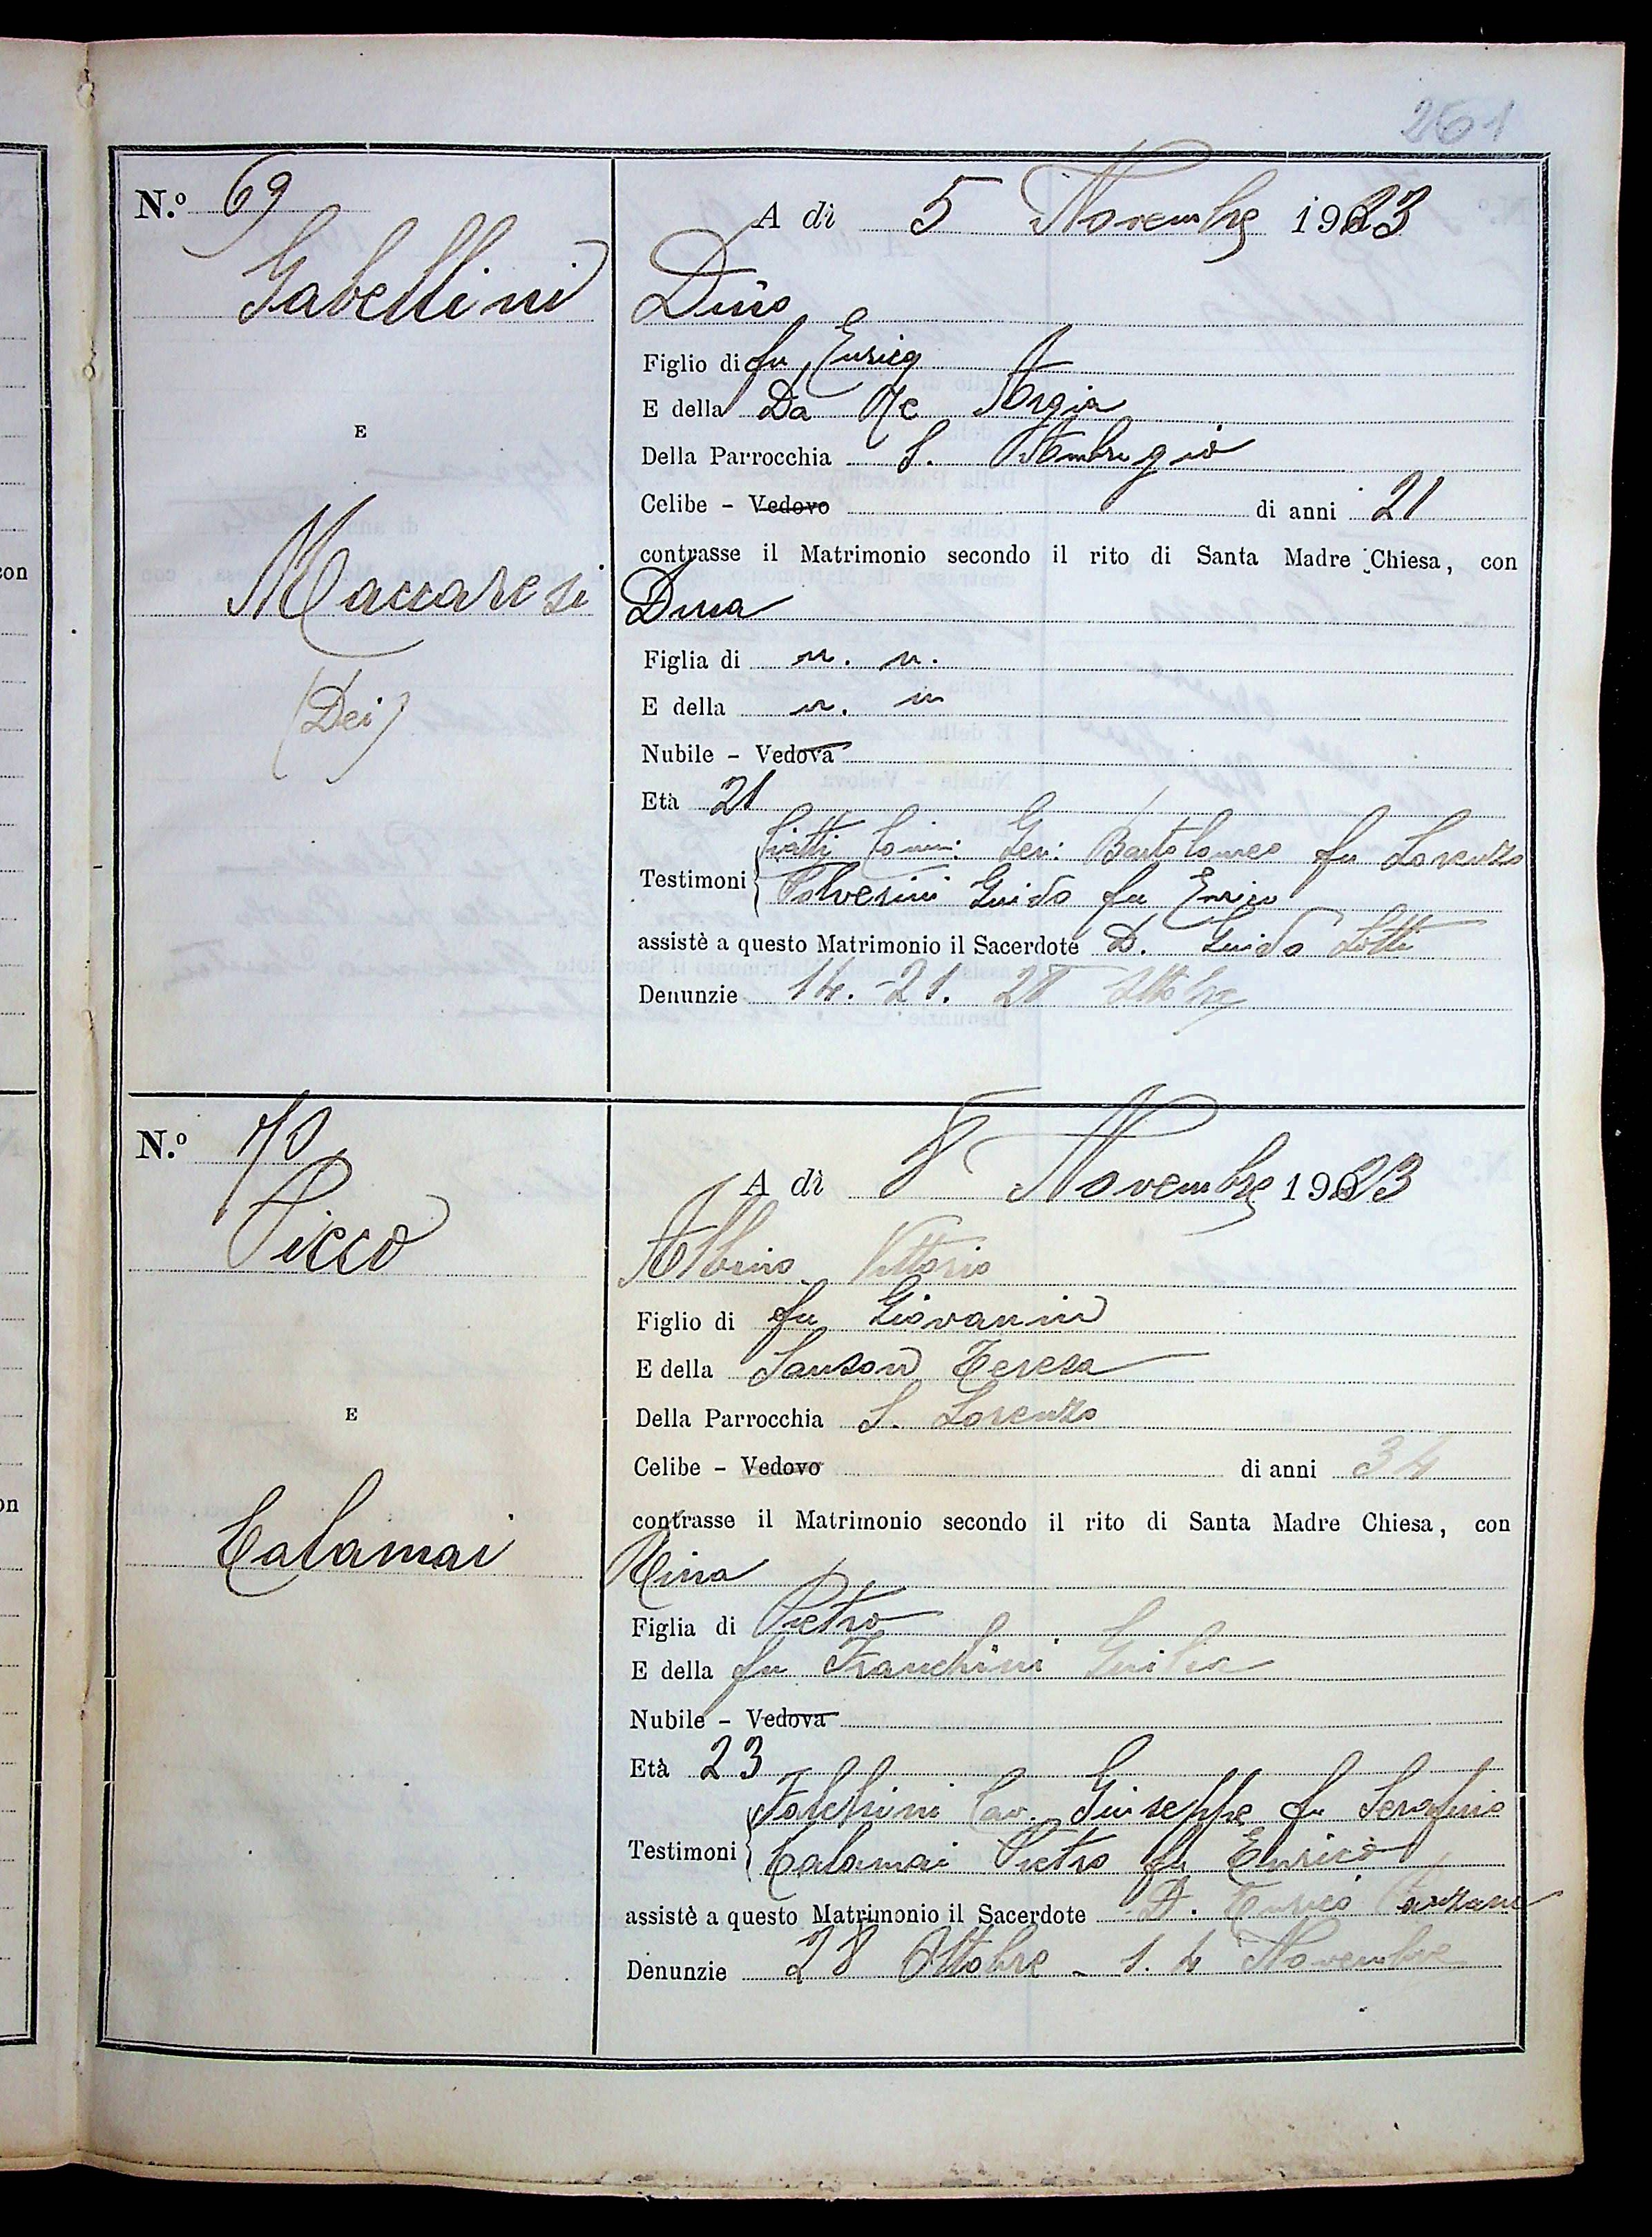 261
N.º 69
A dì 5 Novembre 1923
Gabellini
Dino
Figlio di fu Enrico
E
E della Da Re Argia
Della Parrocchia S. Ambrogio
Celibe - Vedovo di anni 21
contrasse il Matrimonio secondo il rito di Santa Madre Chiesa, con
Maccaresi
Dina
(Dei)
Figlia di n. n.
E della n. n
Nubile - Vedova
Età 21
Gen: Bartolomeo fu Lorenzo
Testimoni
Polverini Guido fu Enrico
assistè a questo Matrimonio il Sacerdote D. Guido Lotti
Denunzie 14. - 21. 28 Ottobre
N.º 70
A dì 8 Novembre 1923
Picco
Albino Vittorio
Figlio di fu Giovanni
E della Sanson Teresa
E
Della Parrocchia S. Lorenzo
Celibe - Vedovo di anni 34
contrasse il Matrimonio secondo il rito di Santa Madre Chiesa, con
Calamai
Nina
Figlia di Pietro
E della fu Franchini Giulia
Nubile - Vedova
Età 23
Cav. Giuseppe fu Serafino
Testimoni
Calamai Pietro fu Enrico
assistè a questo Matrimonio il Sacerdote D. Enrico
Denunzie 28 Ottobre - 1. 4 Novembre
con
on